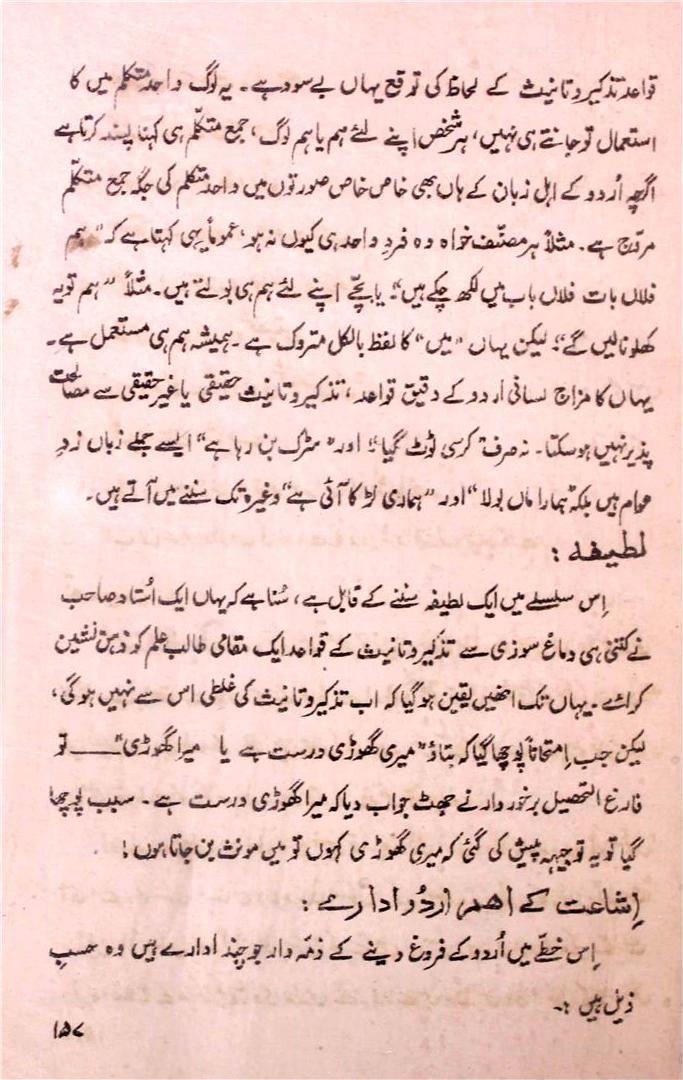 قواعد تذکیر و تانیث کے لحاظ کی توقع یہاں بے سود ہے۔ یہ لوگ واحد متکلم میں کا
استعمال تو جانتے ہی نہیں، ہر شخص اپنے لئے ہم یا ہم لوگ، جمع متکلّم ہی کہنا پسند کرتا ہے
اگرچہ اُردو کے اہل زبان کے ہاں بھی خاص خاص صورتوں میں واحد متکلم کی جگہ جمع متکلّم
مروّج ہے۔ مثلاً ہر مصنّف خواہ وہ فردِ واحد ہی کیوں نہ ہو، عموماً یہی کہتا ہے کہ "ہم
فلاں بات فلاں باب میں لکھ چکے ہیں"۔ یا بچّے اپنے لئے ہم ہی بولتے ہیں۔ مثلاً "ہم تو یہ
کھلونا لیں گے"؛ لیکن یہاں "میں" کا لفظ بالکل متروک ہے۔ ہمیشہ ہم ہی مستعمل ہے۔
یہاں کا مزاج لسانی اردو کے دقیق قواعد، تذکیر و تانیث حقیقی یا غیر حقیقی سے مصالحت
پذیر نہیں ہوسکتا۔ نہ صرف "کرسی ٹوٹ گیا"؛ اور "سڑک بن رہا ہے" ایسے جملے زباں زدِ
عوام ہیں بلکہ "ہمارا ماں بولا" اور "ہماری لڑکا آئی ہے" وغیرہ تک سننے میں آتے ہیں۔
لطیفہ :
اِس سلسلے میں ایک لطیفہ سننے کے قابل ہے، سُنا ہے کہ یہاں ایک اُستاد صاحب
نے کتنی ہی دماغ سوزی سے تذکیر و تانیث کے قواعد ایک مقامی طالب علم کو ذہن نشین
کرائے۔ یہاں تک انھیں یقین ہوگیا کہ اب تذکیر و تانیث کی غلطی اس سے نہیں ہوگی،
لیکن جب اِمتحاناً پوچھا گیا کہ بتاؤ "میری گھوڑی درست ہے یا میرا گھوڑی"ــــ تو
فارغ التحصیل برخوردار نے جھٹ جواب دیا کہ میرا گھوڑی درست ہے۔ سبب پوچھا
گیا تو یہ توجیہہ پیش کی گئی کہ میری گھوڑی کہوں تو میں مونث بن جاتا ہوں!
اِشاعت کے اھم اردُو ادارے :
اِس خطّے میں اُردو کے فروغ دینے کے ذمّہ دار جو چند ادارے ہیں وہ حسبِ
ذیل ہیں :۔
۱۵۷